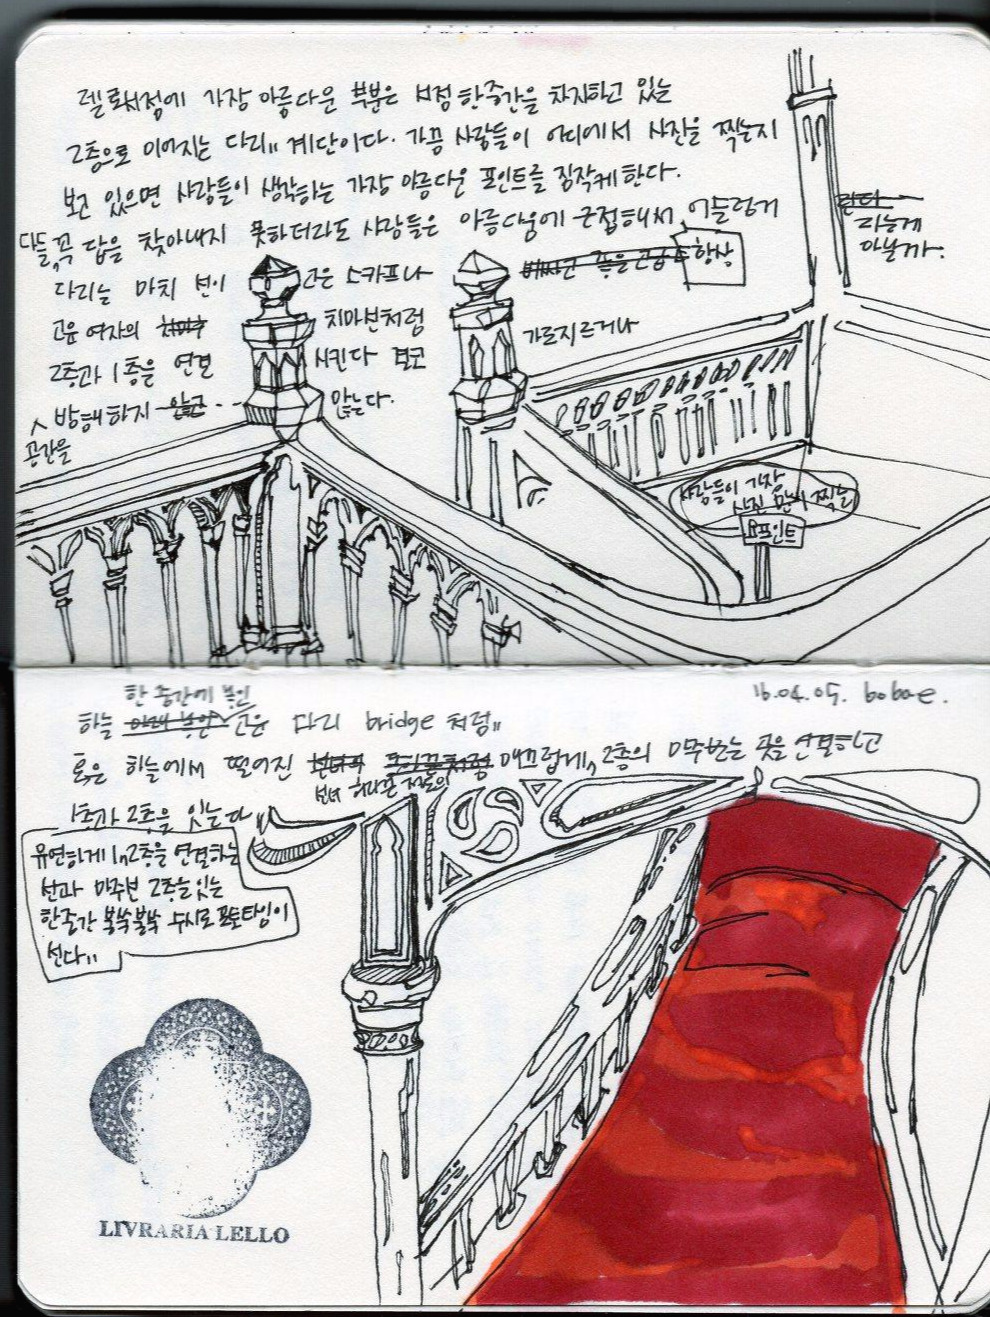 렐로서점에 가장 아름다운 부분은 서점 한중간을 차지하고 있는
2층으로 이어지는 다리" 계단이다. 가끔 사람들이 어디에서 사진을 찍는지
보고 있으면 사람들이 생각하는 가장 아름다운 포인트를 짐작케 한다.
다들, 꼭 답을 찾아내지 못하더라도 사람들은 아름다움에 근접해서 어슬렁거
린다
리는게
아닐까.
다리는 마치 선이 고운 스카프나
항상
고운 여자의 치마 치마선처럼
가로지르거나
2층과 1층을 연결 시킨다 결코
방해하지 않는다.
공간을
사람들이 가장
사진 많이 찍는
포인트
한 중간에 놓인
16.04.05. bobae.
하늘 고운 다리 bridge 처럼"
혹은 하늘에서 떨어진 매끄럽게, 2층의 마주보는 곳을 연결하고
1층과 2층을 잇는다
유연하게 1,2층을 연결하는
선과 마주본 2층을 잇는
한중간 북쩍북쩍 수시로 포토타임이
선다"
LIVRARIA LELLO